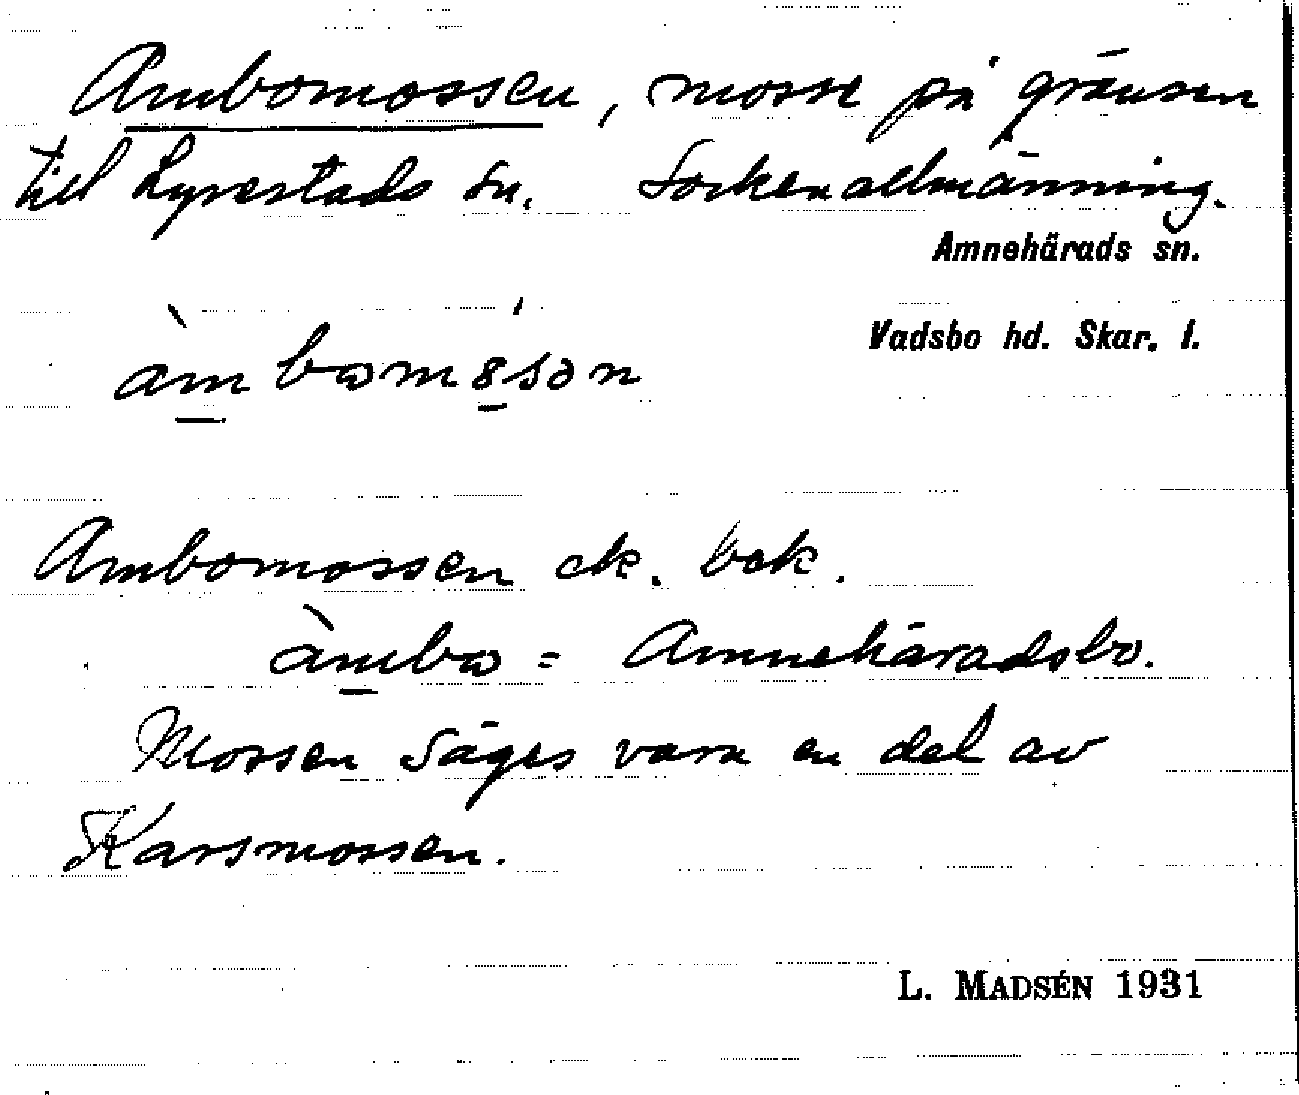 Ambomossen, mosse på gränsen
till Lyrestads sn. Sockenallmänning.
Amnehärads sn.
Vadsbo hd. Skar. l.
Ambomossen ek. bok.
àmbω = Amnehäradsbo.
Mossen säges vara en del av
Karsmossen.
L. MADSÉN 1931